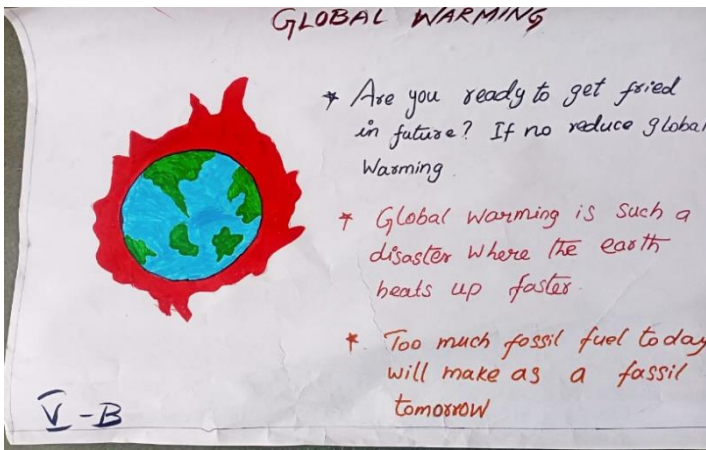 GLOBAL WARMING
* Are you ready to get fried
in future? If no reduce global
Warming
* Global warming is such a
disaster where the earth
heats up faster.
* Too much fossil fuel today
will make as a fassil
tomorrow
V - B